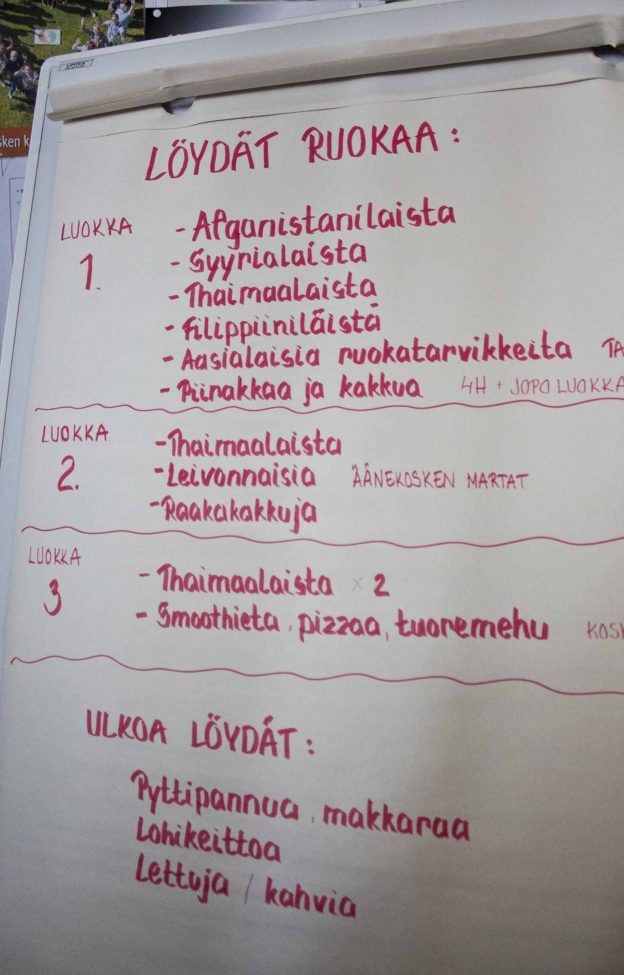 LÖYDÄT RUOKAA :
LUOKKA 1.
- Afganistanilaista
- Syyrialaista
- Thaimaalaista
- Filippiiniläistä
- Aasialaisia ruokatarvikkeita TA
- Piirakkaa ja kakkua 4H + JOPO LUOKKA
LUOKKA 2.
- Thaimaalaista
- Leivonnaisia ÄÄNEKOSKEN MARTAT
- Raakakakkuja
LUOKKA 3
- Thaimaalaista x 2
- Smoothieta, pizzaa, tuoremehu KOSK
ULKOA LÖYDÄT :
Pyttipannua, makkaraa
Lohikeittoa
Lettuja / kahvia